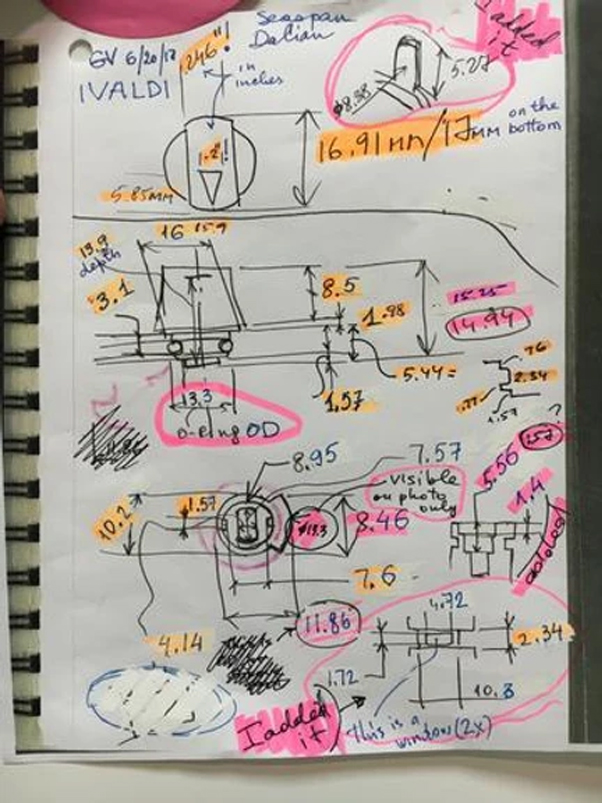 GV 6/20/17
IVALDI
.246"!
in
inches
Seaspan
Dalian
I added
it
5.27
Ø8.98
16.91mm/17mm on the
bottom
1.2"!
5.85mm
13.9
depth
16 15.9
3.1
8.5
1.98
15.25
14.94
5.44=
1.57
.76
2.34
.77
1.57
13.3
O-ring OD
8.95
7.57
visible
on photo
only
10.2
1.57
Ø13.3
8.46
7.6
11.86
4.14
1.57?
5.56
1.4
added
4.72
2.34
1.72
10.3
I added
it
This is a
window (2x)